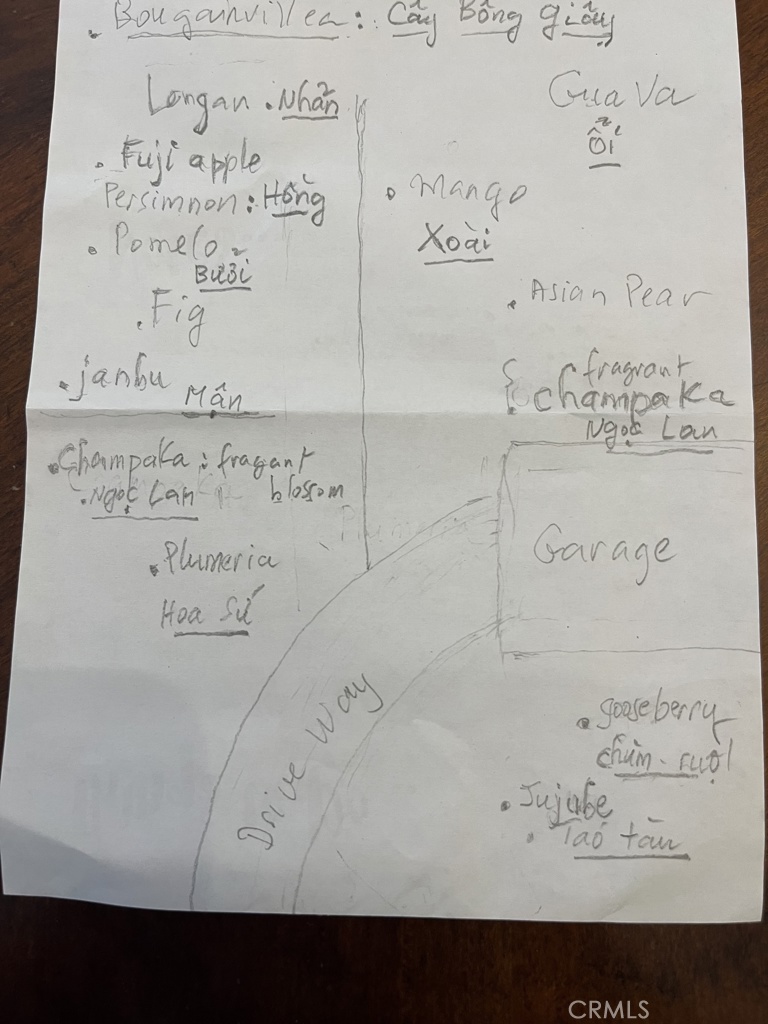 . Bougainvillea: Cây Bông giấy
Longan . Nhãn
Guava
Ổi
. Fuji apple
Persimnon: Hồng
. Mango
Xoài
. Pomelo
Bưởi
. Fig
. Asian Pear
. janbu
Mận
fragrant
champaka
Ngọc Lan
. Champaka: fragant
. Ngọc Lan blossom
Plumeria
. Plumeria
Hoa Sứ
Garage
Drive Way
. gooseberry
chùm. ruột
. Jujube
. Táo tàu
CRMLS